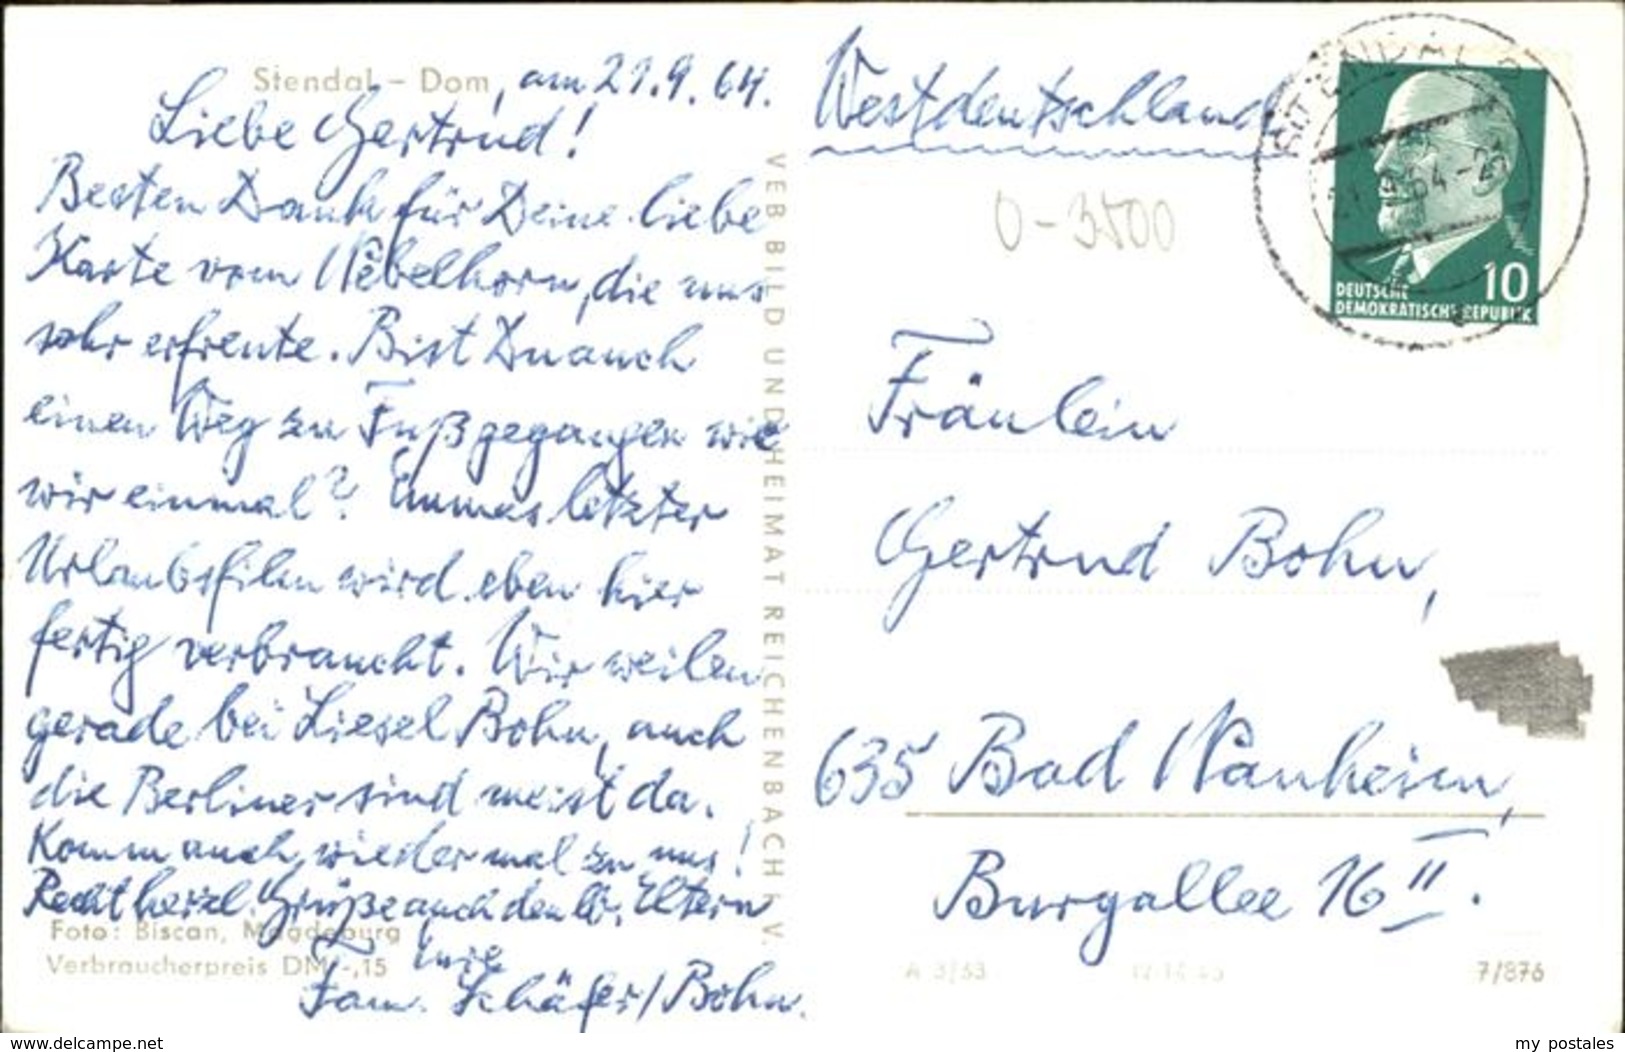 Stendal – Dom, am 21.9.64.
Liebe Gertrud!
Besten Dank für Deine liebe
Karte vom Nebelhorn, die uns
sehr erfreute. Bist Du auch
einen Weg zu Fuß gegangen wie
wir einmal? Unser letzter
Urlaubsfilm wird eben hier
fertig verbraucht. Wir weilen
gerade bei Liesel Bohn, auch
die Berliner sind meist da.
Komm auch wieder mal zu uns!
Recht herzl. Grüße auch den lb. Eltern
Eure
Fam. Schäfer/Bohn.
Foto: Biscan, Magdeburg
Verbraucherpreis DM -,15
VEB BILD UND HEIMAT REICHENBACH i. V.
Westdeutschland
0-3500
STENDAL
DEUTSCHE
DEMOKRATISCHE REPUBLIK
10
Fräulein
Gertrud Bohn,
635 Bad Nauheim,
Burgallee 16 II.
A 3/63
7/876
www.delcampe.net
my_postales